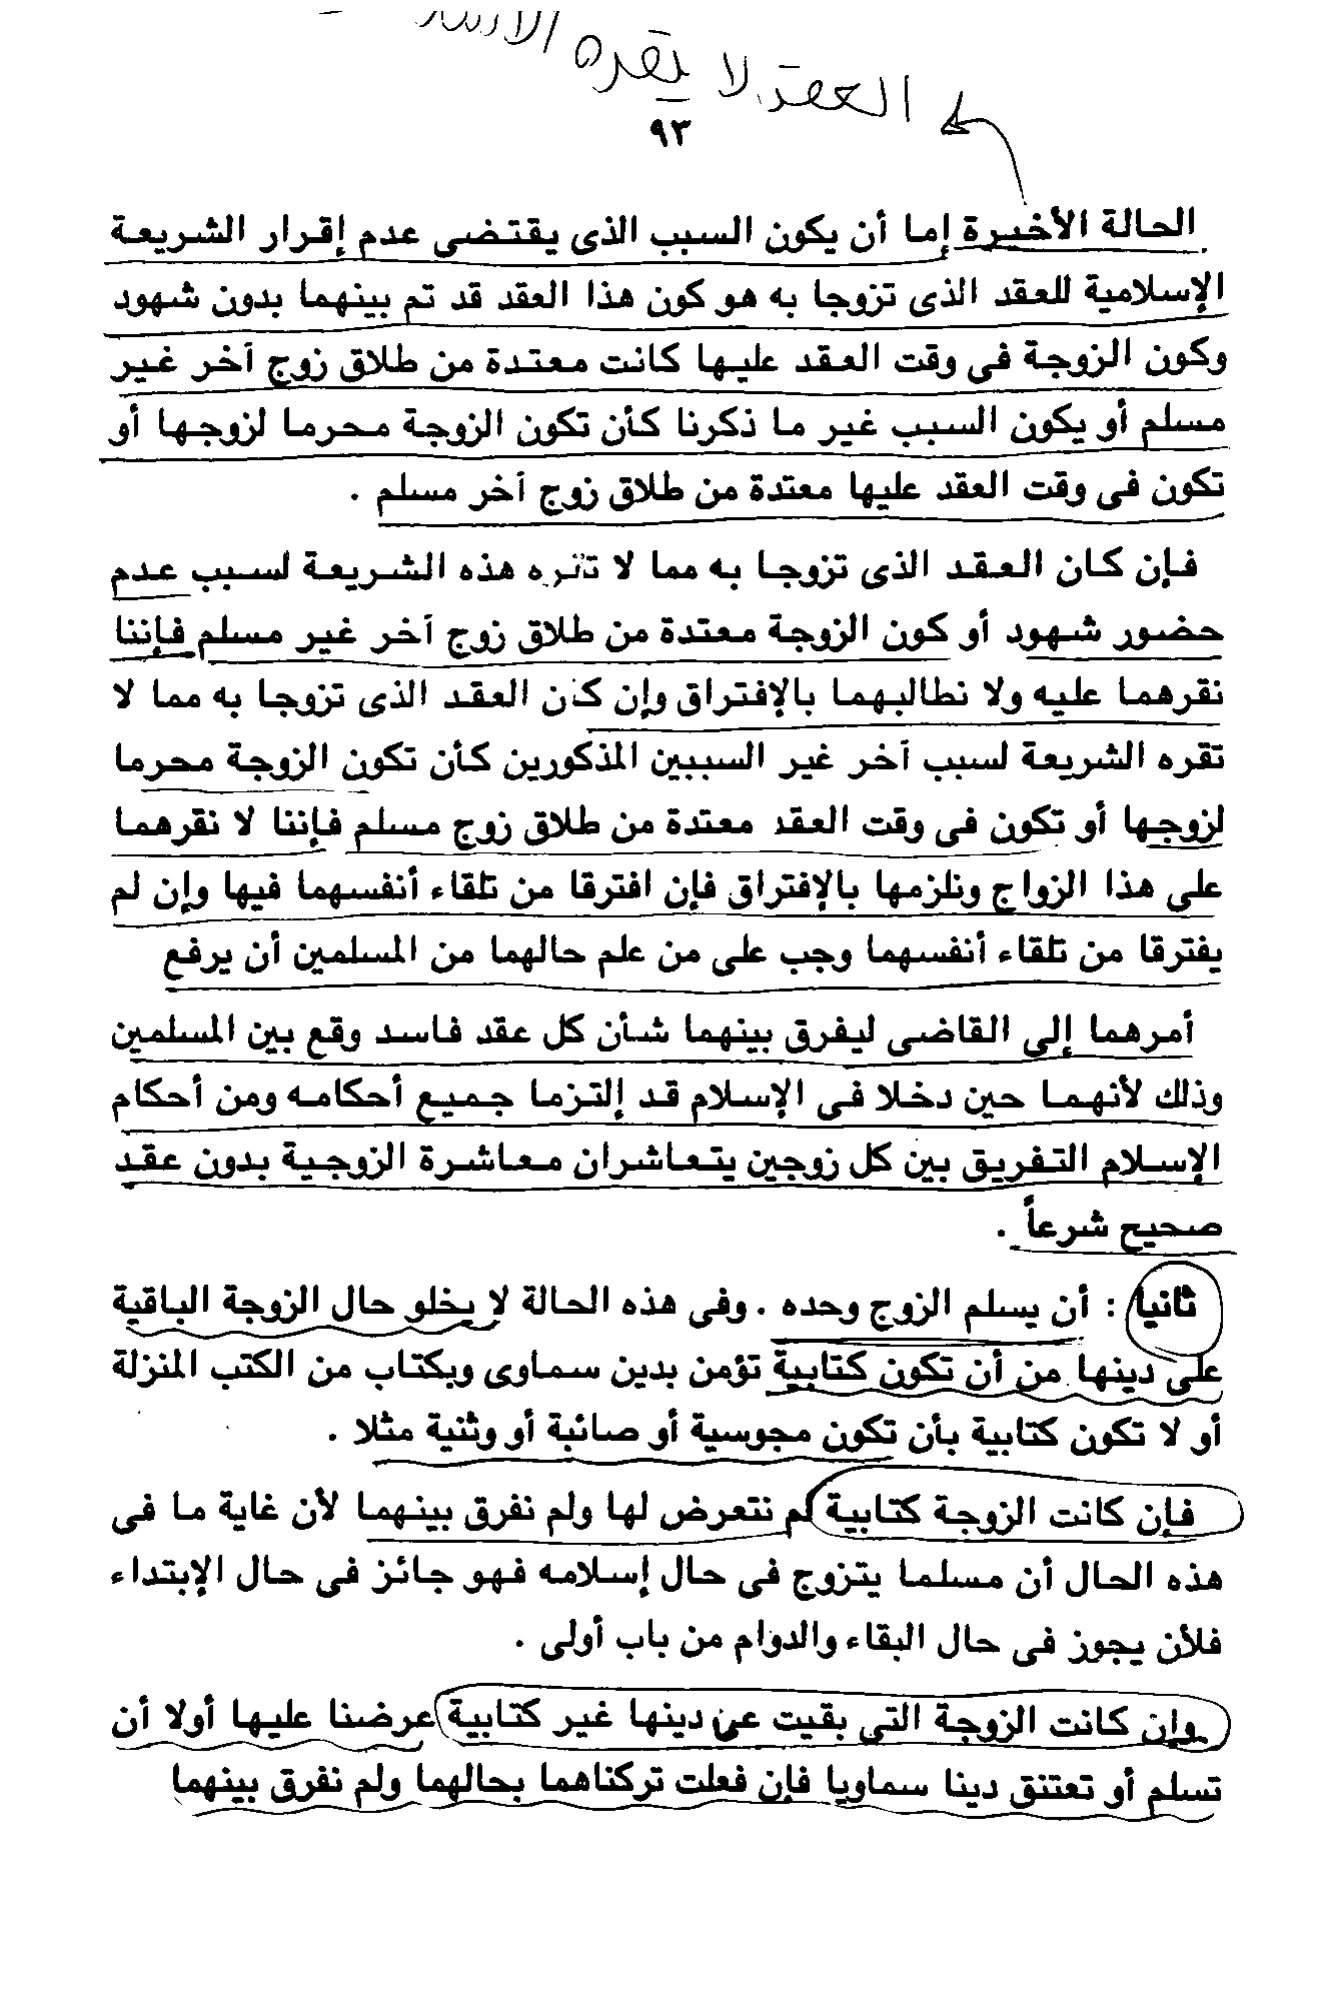 العقد لا يقره
٩٣
الحالة الأخيرة إما أن يكون السبب الذى يقتضى عدم إقرار الشريعة
الإسلامية للعقد الذى تزوجا به هو كون هذا العقد قد تم بينهما بدون شهود
وكون الزوجة فى وقت العقد عليها كانت معتدة من طلاق زوج آخر غير
مسلم أو يكون السبب غير ما ذكرنا كأن تكون الزوجة محرما لزوجها أو
تكون فى وقت العقد عليها معتدة من طلاق زوج آخر مسلم .
فإن كان العقد الذى تزوجا به مما لا تقره هذه الشريعة لسبب عدم
حضور شهود أو كون الزوجة معتدة من طلاق زوج آخر غير مسلم فإننا
نقرهما عليه ولا نطالبهما بالإفتراق وإن كان العقد الذى تزوجا به مما لا
تقره الشريعة لسبب آخر غير السببين المذكورين كأن تكون الزوجة محرما
لزوجها أو تكون فى وقت العقد معتدة من طلاق زوج مسلم فإننا لا نقرهما
على هذا الزواج ونلزمها بالإفتراق فإن افترقا من تلقاء أنفسهما فيها وإن لم
يفترقا من تلقاء أنفسهما وجب على من علم حالهما من المسلمين أن يرفع
أمرهما إلى القاضى ليفرق بينهما شأن كل عقد فاسد وقع بين المسلمين
وذلك لأنهما حين دخلا فى الإسلام قد إلتزما جميع أحكامه ومن أحكام
الإسلام التفريق بين كل زوجين يتعاشران معاشرة الزوجية بدون عقد
صحيح شرعاً .
ثانيا : أن يسلم الزوج وحده . وفى هذه الحالة لا يخلو حال الزوجة الباقية
على دينها من أن تكون كتابية تؤمن بدين سماوى وبكتاب من الكتب المنزلة
أو لا تكون كتابية بأن تكون مجوسية أو صائبة أو وثنية مثلا .
فإن كانت الزوجة كتابية لم نتعرض لها ولم نفرق بينهما لأن غاية ما فى
هذه الحال أن مسلما يتزوج فى حال إسلامه فهو جائز فى حال الإبتداء
فلأن يجوز فى حال البقاء والدوام من باب أولى .
وإن كانت الزوجة التى بقيت عن دينها غير كتابية عرضنا عليها أولا أن
تسلم أو تعتنق دينا سماويا فإن فعلت تركناهما بحالهما ولم نفرق بينهما